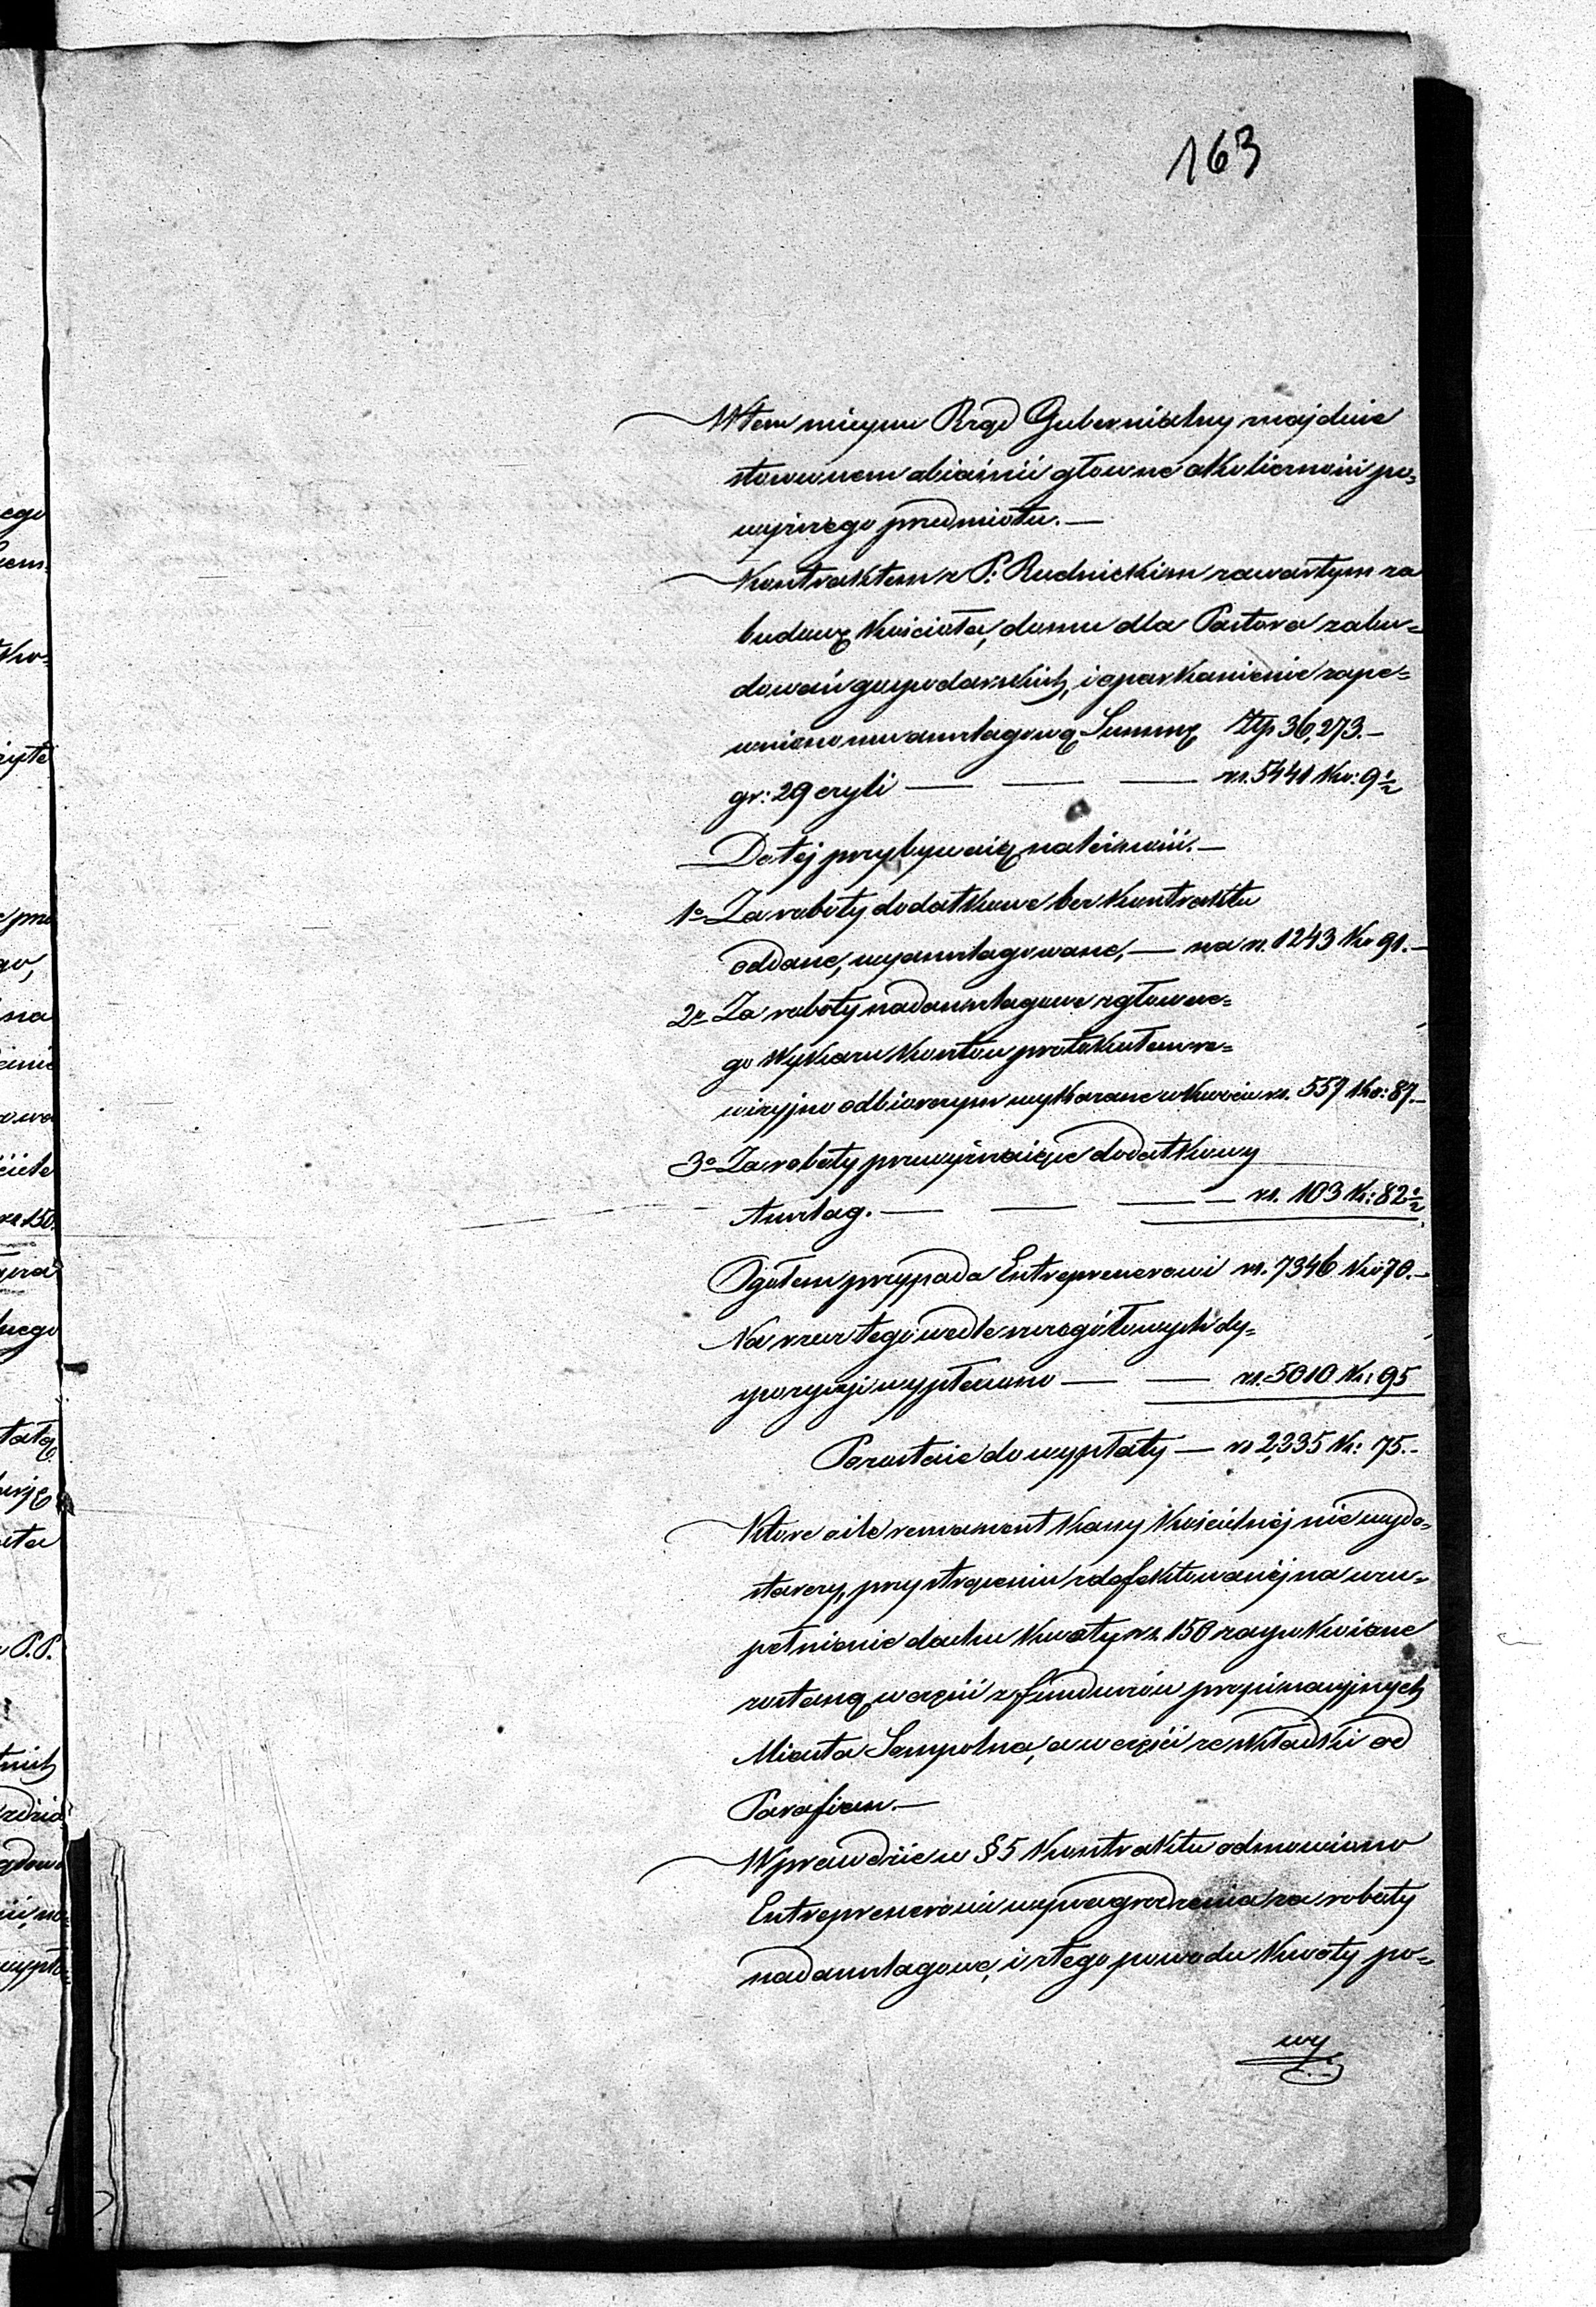 163
W tem mieyscu Rząd Gubernialny znajduie
stosownem obiaśnić głowne okoliczności po=
wyższego przedmiotu. —
Kontraktem z P: Rudnickim zawartym za
budowę Kościoła, domu dla Pastora zabu=
dowań gospodarskich, i oparkanienie zape=
wniono mu anszlagową Summę Złp 36,273.—
gr: 29 czyli — — — rs. 5441 Ko: 9½
Do tej przybywaią należności. —
1o Za roboty dodatkowe bez Kontraktu
oddane, wyanszlagowane, — na rs. 1243 Ko 91.—
2o Za roboty nadanszlagowe z głowne=
go Wykazu Kosztów protokułem re=
wizyjno odbiorczym wykazane w kwocie rs. 557 Ko: 87.—
3o Za roboty przewyższaiące dodatkowy
Anszlag. — — — — rs. 103 K: 82½
Ogółem przypada Entreprenerowi rs. 7346 Ko 70.—
Na rzecz tego wedle szczegółowych dy=
spozycyi wypłacono — — rs. 5010 K: 95
Pozostaie do wypłaty — rs 2,335 K: 75.—
Które o ile remanent Kassy Kościelnéj nie wydo=
starczy, przy strąceniu zdefektowanéj na uzu=
pełnienie dachu Kwoty rs. 150 zaspokoione
zostaną w części z funduszów propinacyjnych
Miasta Sompolna, a w części ze składki od
Parafian. —
Wprawdzie w § 5 Kontraktu odmowiono
Entreprenerowi wynagrodzenia za roboty
nadanszlagowe, i z tego powodu Kwoty po=
wy